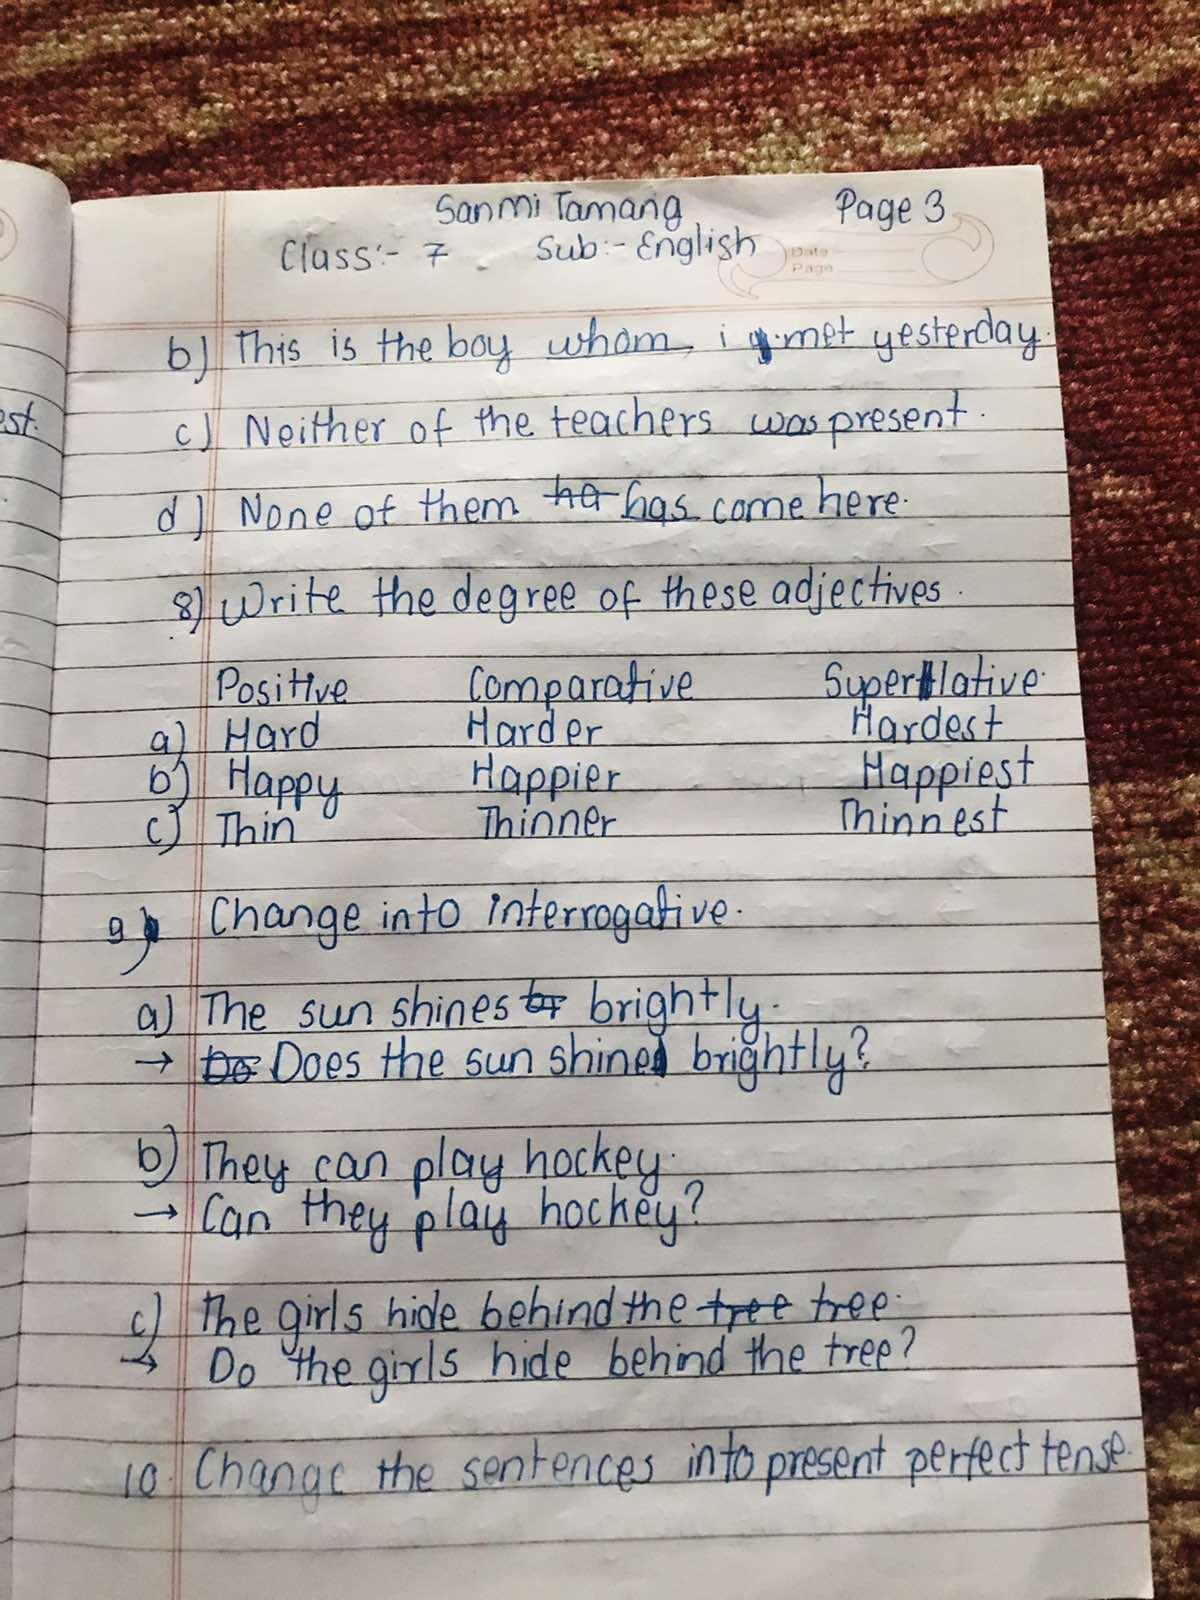 Sanmi Tamang Page 3
Class:- 7 Sub:- English
Date
Page
b) This is the boy whom, i met yesterday.
est.
c) Neither of the teachers was present.
d) None of them ha has come here.
8) Write the degree of these adjectives.
Positive Comparative Superlative
a) Hard Harder Hardest
b) Happy Happier Happiest
c) Thin Thinner Thinnest
9) Change into interrogative.
a) The sun shines br brightly.
→ Do Does the sun shine brightly?
b) They can play hockey.
→ Can they play hockey?
c) The girls hide behind the tree tree.
→ Do the girls hide behind the tree?
10. Change the sentences into present perfect tense.